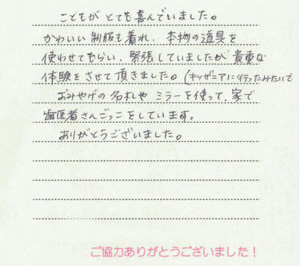 こどもが とても喜んでいました。
かわいい制服も着れ、本物の道具を
使わせてもらい、緊張していましたが貴重な
体験をさせて頂きました。(キッザニアに行ったみたいで
おみやげの名札や ミラーを使って、家で
歯医者さんごっこをしています。
ありがとうございました。
ご協力ありがとうございました!